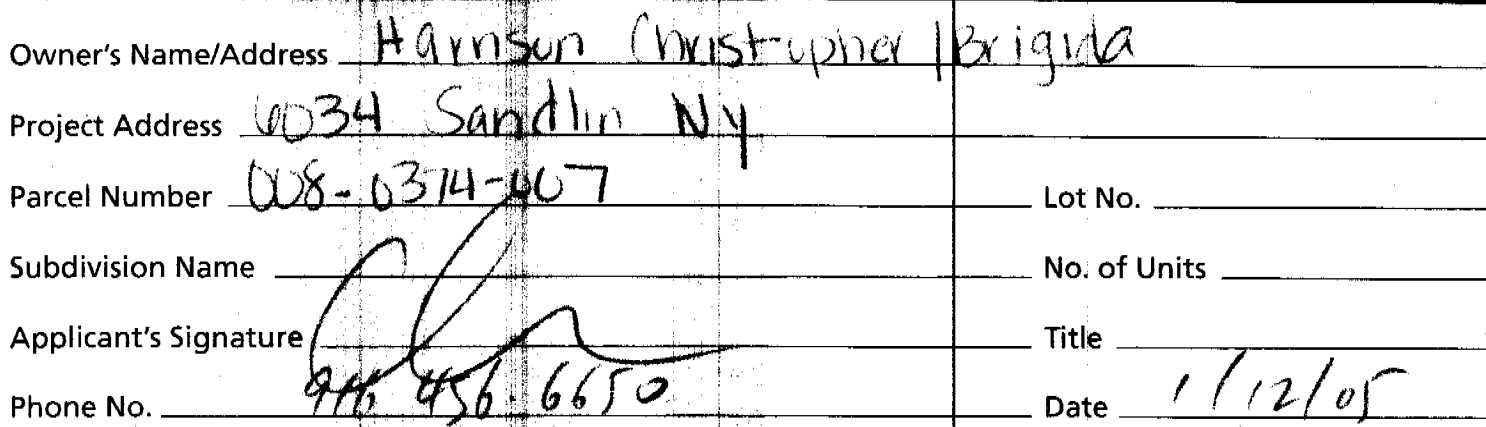 Owner's Name/Address Harrison Christopher / Brigida
Project Address 6034 Sandlin Ny
Parcel Number 008-0374-007
Lot No.
Subdivision Name
No. of Units
Applicant's Signature
Title
Phone No. 916 456.6650
Date 1/12/05